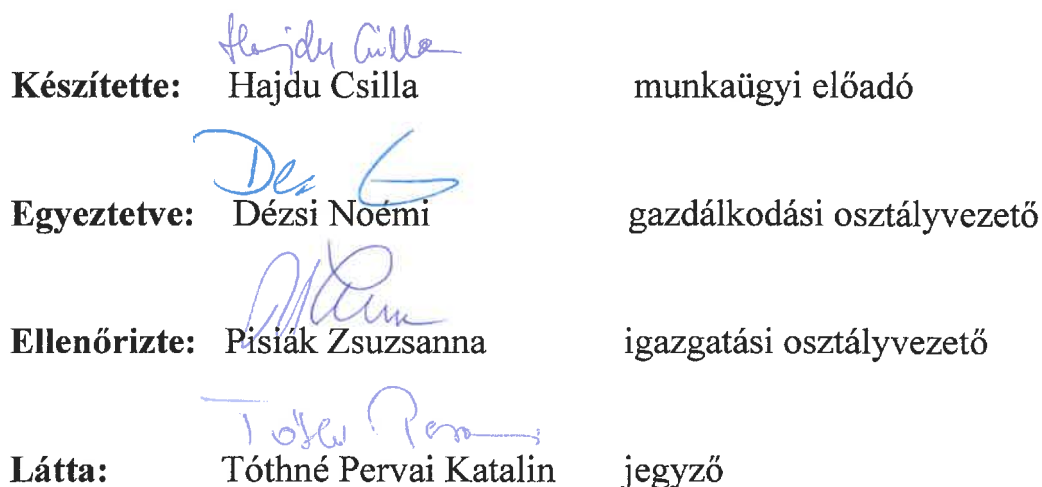 Hajdu Csilla
Készítette: Hajdu Csilla munkaügyi előadó
Egyeztetve: Dézsi Noémi gazdálkodási osztályvezető
Ellenőrizte: Pisiák Zsuzsanna igazgatási osztályvezető
Látta: Tóthné Pervai Katalin jegyző